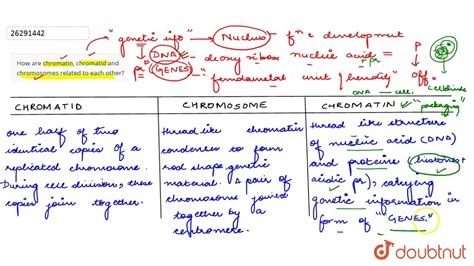 26291442
How are chromatin, chromatid and
chromosomes related to each other?
"genetic info" → Nucleus → fⁿ & development
DNA - deoxy ribose nucleic acid
pr
P
GENES - "fundamental unit of heredity"
off.
DNA
cell.
CHROMATID
CHROMOSOME
CHROMATIN "packaging"
one half of two
identical copies of a
replicated chromosome.
During cell division, these
copies join together.
thread like chromatin
condenses to form
rod shape genetic
material. A pair of
chromosome joined
together by a
centromere.
thread like structure
of nucleic acid (DNA)
and proteins (histones +
acidic pr), carrying
genetic information in
form of "GENES."
doubtnut